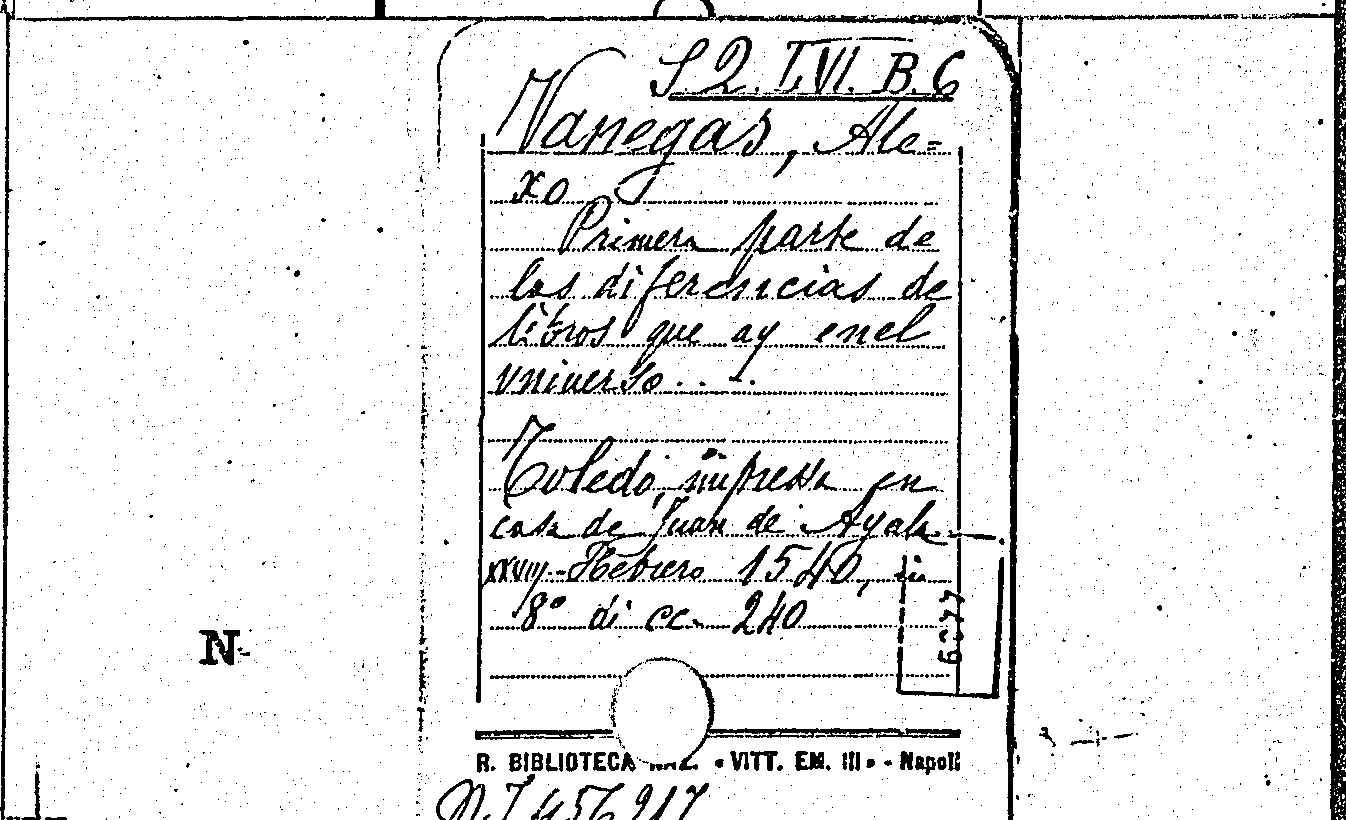 S Q. LVI. B. 6
Vanegas, Ale=
xo
Primera parte de
las diferencias de
libros que ay enel
vniuerso . . .
Toledo, impressa en
casa de Juan de Ayala.
XXVIIJ Hebrero 1540, in
8° di cc. 240
6377
N
R. BIBLIOTECA NAZ. • VITT. EM. III • - Napoli
456217